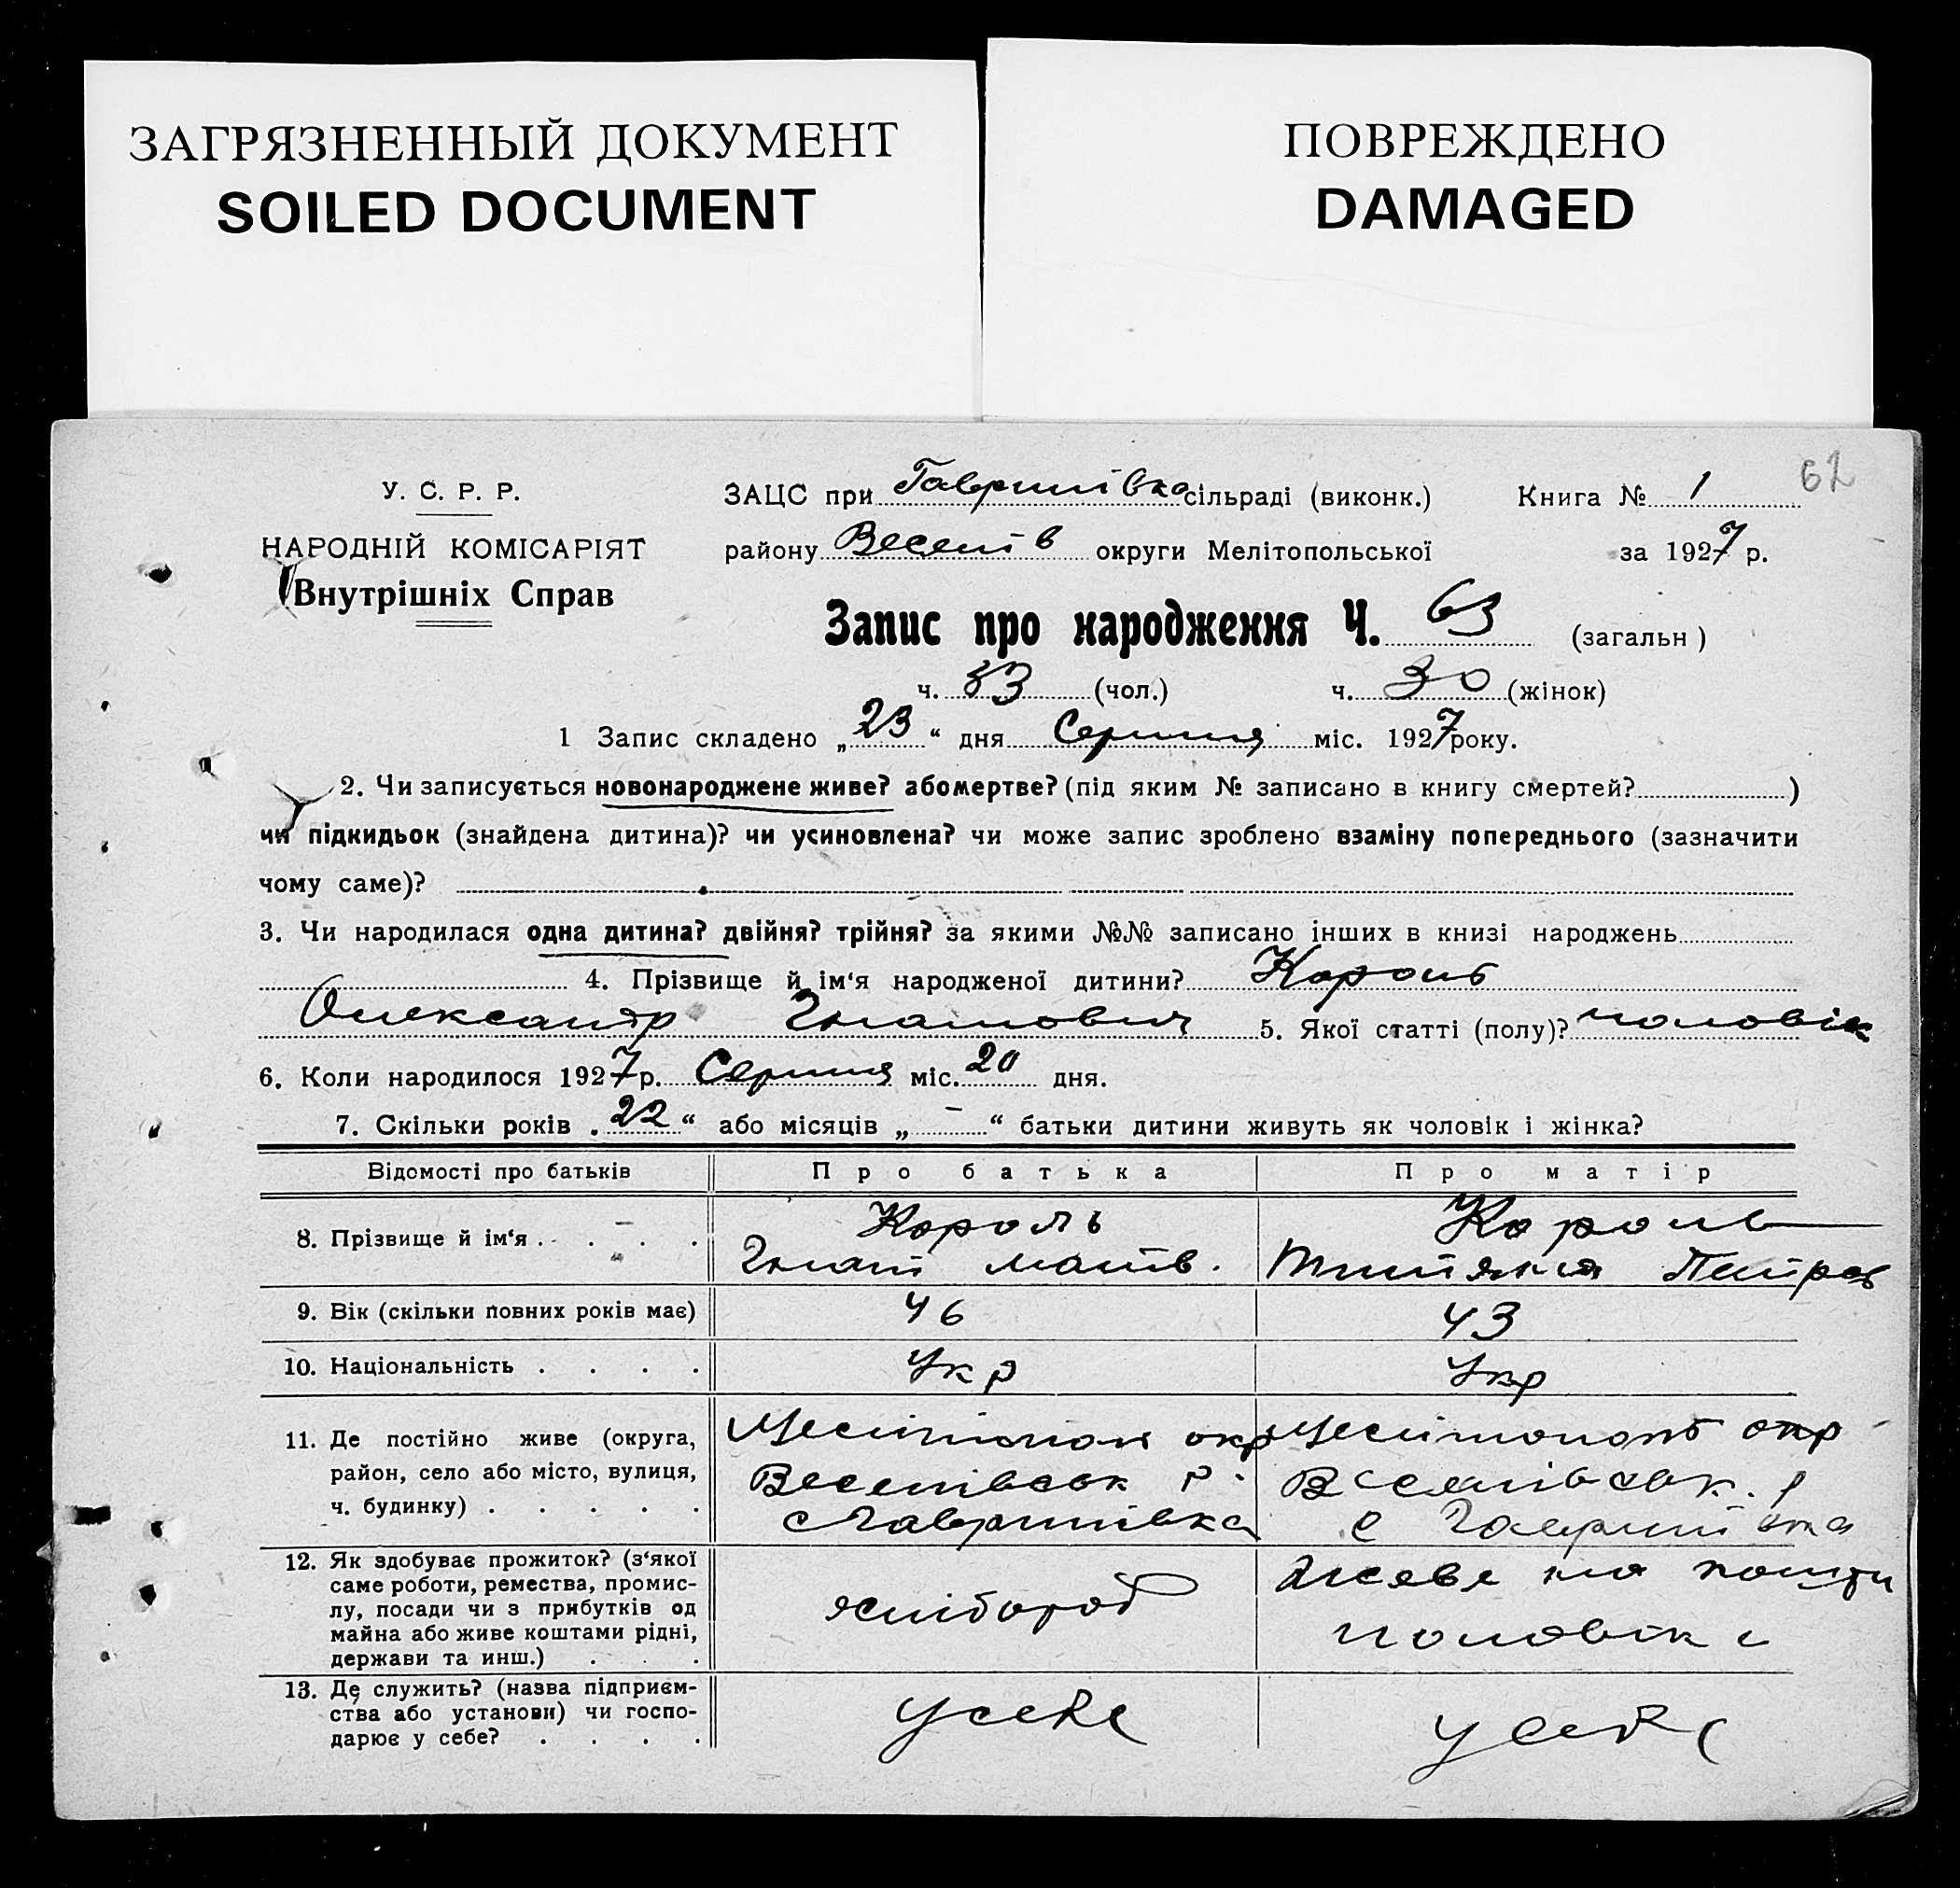 ЗАГРЯЗНЕННЫЙ ДОКУМЕНТ
SOILED DOCUMENT
ПОВРЕЖДЕНО
DAMAGED
62
У. С. Р. Р.
НАРОДНІЙ КОМІСАРІЯТ
Внутрішніх Справ
ЗАЦС при Гаврилівка сільраді (виконк.) Книга № 1
району Веселів округи Мелітопольської за 1927 р.
Запис про народження Ч. 63 (загальн )
ч. 33 (чол.) ч. 30 (жінок)
1 Запис складено „23“ дня Серпня міс. 1927 року.
2. Чи записується новонароджене живе? або мертве? (під яким № записано в книгу смертей? )
чи підкидьок (знайдена дитина)? чи усиновлена? чи може запис зроблено взаміну попереднього (зазначити
чому саме)?
3. Чи народилася одна дитина? двійня? трійня? за якими №№ записано інших в книзі народжень
4. Прізвище й ім‘я народженої дитини? Король
Олександр Гнатович 5. Якої статті (полу)? чоловік
6. Коли народилося 1927 р. Серпня міс. 20 дня.
7. Скільки років „22“ або місяців „—“ батьки дитини живуть як чоловік і жінка?
Відомості про батьків Про батька Про матір
8. Прізвище й ім‘я . . . . .
Король
Гнат Матв.
Король
Петров
9. Вік (скільки повних років має) 46 43
10. Національність . . . . Укр Укр
11. Де постійно живе (округа,
район, село або місто, вулиця,
ч. будинку) . . . . .
окр
Веселівськ р.
с Гаврилівка
окр
Веселівськ. р
с Гаврилівка
12. Як здобуває прожиток? (з‘якої
саме роботи, ремества, промис-
лу, посади чи з прибутків од
майна або живе коштами рідні,
держави та инш.) . . .
хлібороб
живе на кошти
чоловіка
13. Де служить? (назва підприєм-
ства або установи) чи госпо-
дарює у себе? . . . .
у себе
у себе